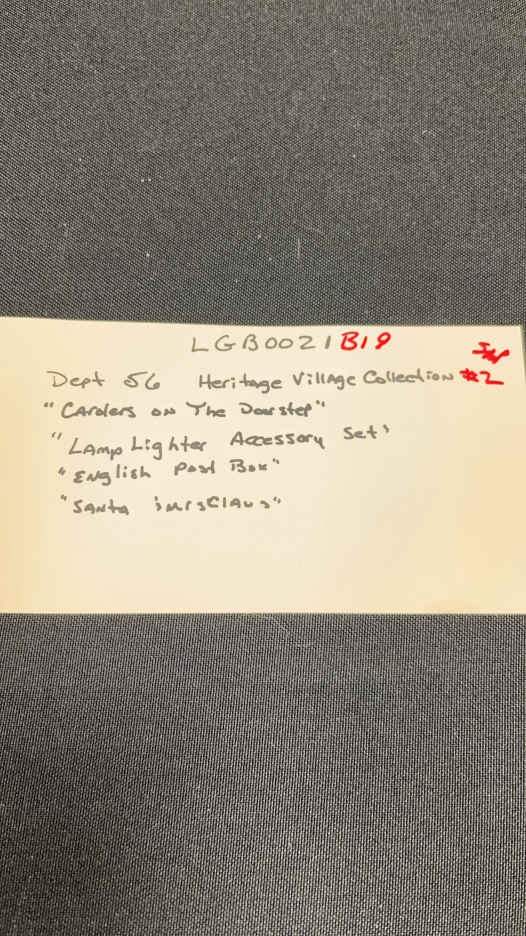 LGB0021 B19
Dept 56 Heritage Village Collection #2
"Carolers on The Doorstep"
"Lamp Lighter Accessory Set"
"English Post Box"
"Santa & Mrs Claus"